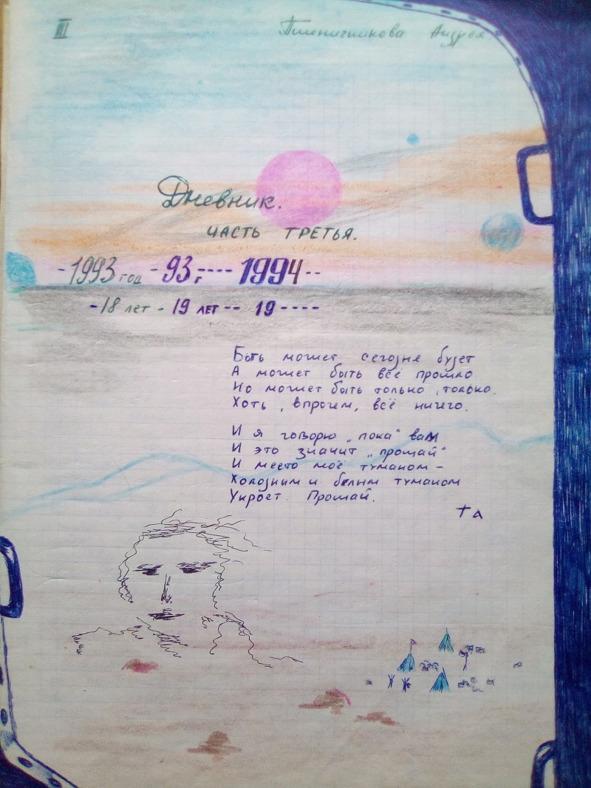 III
Пшеничникова Андрея
Дневник.
ЧАСТЬ ТРЕТЬЯ.
-1993 год -93г---- 1994--
-18 лет - 19 лет-- 19 ----
Быть может сегодня будет
А может быть всё прошло
Но может быть только, только.
Хоть, впрочем, всё ничего.
И я говорю „пока" вам
И это значит „прощай"
И место моё туманом-
Холодным и белым туманом
Укроет. Прощай.